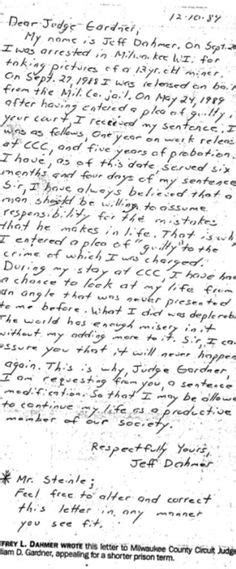 12-10-89
Dear Judge Gardner,
My name is Jeff Dahmer. On Sept. 26
I was arrested in Milwaukee WI. for
taking pictures of a 13 yr. old minor.
On Sept. 27, 1988 I was released on bail
from the Mil. Co. jail. On May 24, 1989
after having entered a plea of guilty in
your court, I received my sentence. I
was as follows, One year on work release
at CCC, and five years of probation.
I have, as of this date, served six
months and four days of my sentence.
Sir, I have always believed that a
man should be willing to assume
responsibility for the mistakes
that he makes in life. That is why
I entered a plea of "guilty" to the
crime of which I was charged.
During my stay at CCC, I have had
a chance to look at my life from
an angle that was never presented
to me before. What I did was deplorable
The world has enough misery in it
without my adding more to it. Sir, I can
assure you that it will never happen
again. This is why, Judge Gardner,
I am requesting from you, a sentence
modification. So that I may be allowed
to continue my life as a productive
member of our society.
Respectfully Yours,
Jeff Dahmer
* Mr. Steinle;
Feel free to alter and correct
this letter in any manner
you see fit.
FREY L. DAHMER WROTE this letter to Milwaukee County Circuit Judge
liam D. Gardner, appealing for a shorter prison term.